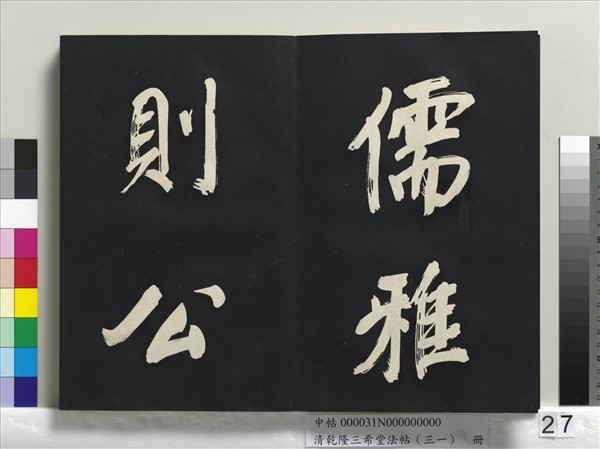 儒雅
則公
中帖 000031N000000000
清乾隆三希堂法帖（三一） 冊
27